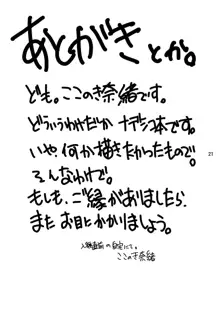 あとがきとか。
ども。ここのき奈緒です。
どういうわけだか ナデシコ本です。
いや、何か描きたかったもので。
そんなわけで。
もしも、ご縁がありましたら、
また お目にかかりましょう。
の自宅にて。
ここのき奈緒